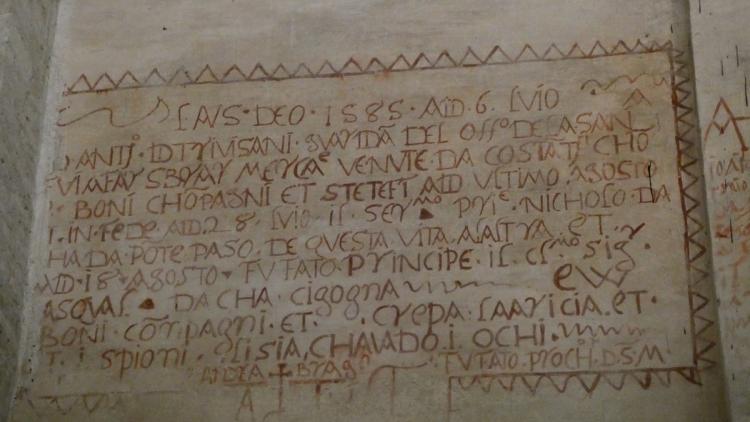 LAVS · DEO · 1585 · AID · 6 · LVIO
ANTº · D TRIVISANI · GVARDA DEL OFFº DE LA SAN
FV IM FAR SBVRAR MERCA VENVTE · DA COSTAT CHO
BONI CHOPAGNI ET STETETI AID VLTIMO AGOSTO
I · IN · FEDE · AID · 28 · LVIO IL SERmo PRIe · NICHOLO · DA
HA DA PŌTE PASO · DE QVESTA VITA A LALTRA · ET ·
AID · 18 · AGOSTO · FV FATO PRINCIPE · IL · CLmo SIGr
ASQVAL · DA CHA · CIGOGNA
BONI · COMPAGNI · ET · CREPA · LAARICIA · ET ·
T · I SPIONI · GLI SIA CHAVADO · I · OCHI ·
FV FATO · PROCH · D · S · M ·